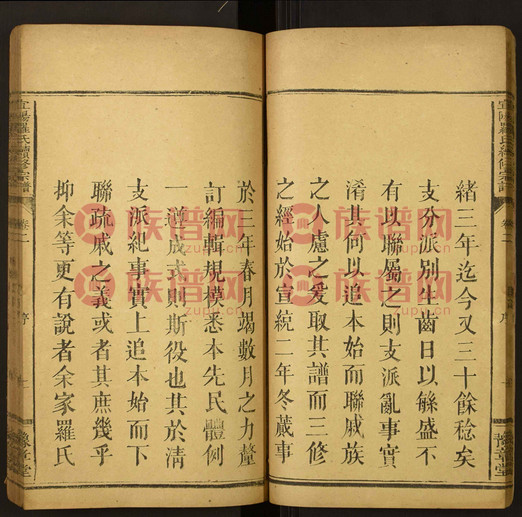 緒三年迄今又三十餘稔矣
支分派別生齒日以緐盛不
有以聯屬之則支派亂事實
淆其何以追本始而聯戚族
之人慮之爰取其譜而三修
之經始於宣統二年冬蕆事
於三年春月竭數月之力釐
訂編輯規模悉本先民體例
一遵成式則斯役也其於清
支派紀事實上追本始而下
聯疏戚之義或者其庶幾乎
抑余等更有說者余家羅氏
宜陽羅氏續修宗譜
卷二
序
豫章堂
族谱网
zupu.cn